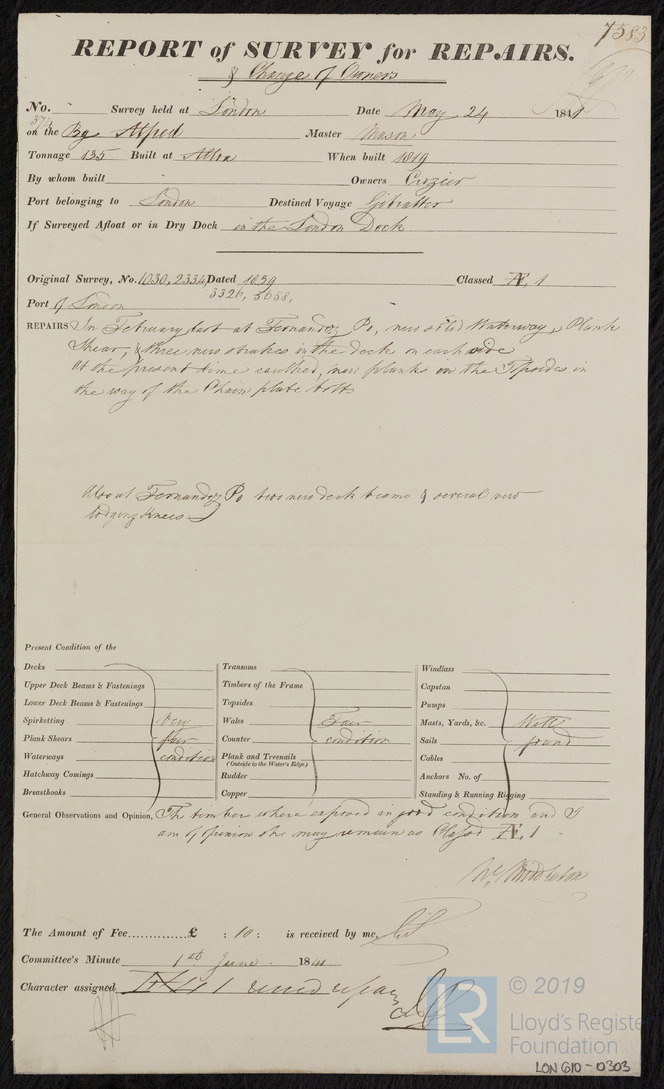 7583
REPORT of SURVEY for REPAIRS.
& Change of Owners
No. 374 Survey held at London Date May 24 1841
on the Bg Alfred Master Mason
Tonnage 135 Built at Alloa When built 1819
By whom built Owners Crozier
Port belonging to London Destined Voyage Gibralter
If Surveyed Afloat or in Dry Dock in the London Dock
Original Survey, No. 1030, 2334, Dated 1839 Classed Æ 1
3326, 5058,
Port of London
REPAIRS In February last at Fernando Po, new Waterways, Plank
Shear, & three new strakes in the deck on each side
At the present time caulked, new planks on the Topsides in
the way of the Chain plate bolts
Also at Fernando Po two new deck beams & several new
lodging knees
Present Condition of the
Decks
Upper Deck Beams & Fastenings
Lower Deck Beams & Fastenings
Spirketting
Plank Shears
Waterways
Hatchway Comings
Breasthooks
Very
fair
condition
Transoms
Timbers of the Frame
Topsides
Wales
Counter
Plank and Treenails
(Outside to the Water's Edge)
Rudder
Copper
Fair
condition
Windlass
Capstan
Pumps
Masts, Yards, &c.
Sails
Cables
Anchors No. of
Standing & Running Rigging
Well
found
General Observations and Opinion, The timber where exposed in good condition and I
am of opinion she may remain as Classed Æ 1
Wm Middleton
The Amount of Fee..............£ : 10 : is received by me,
Committee's Minute 1st June 1841
Character assigned Æ 1
LR
© 2019
Lloyd's Register
Foundation
LON 610 - 0303